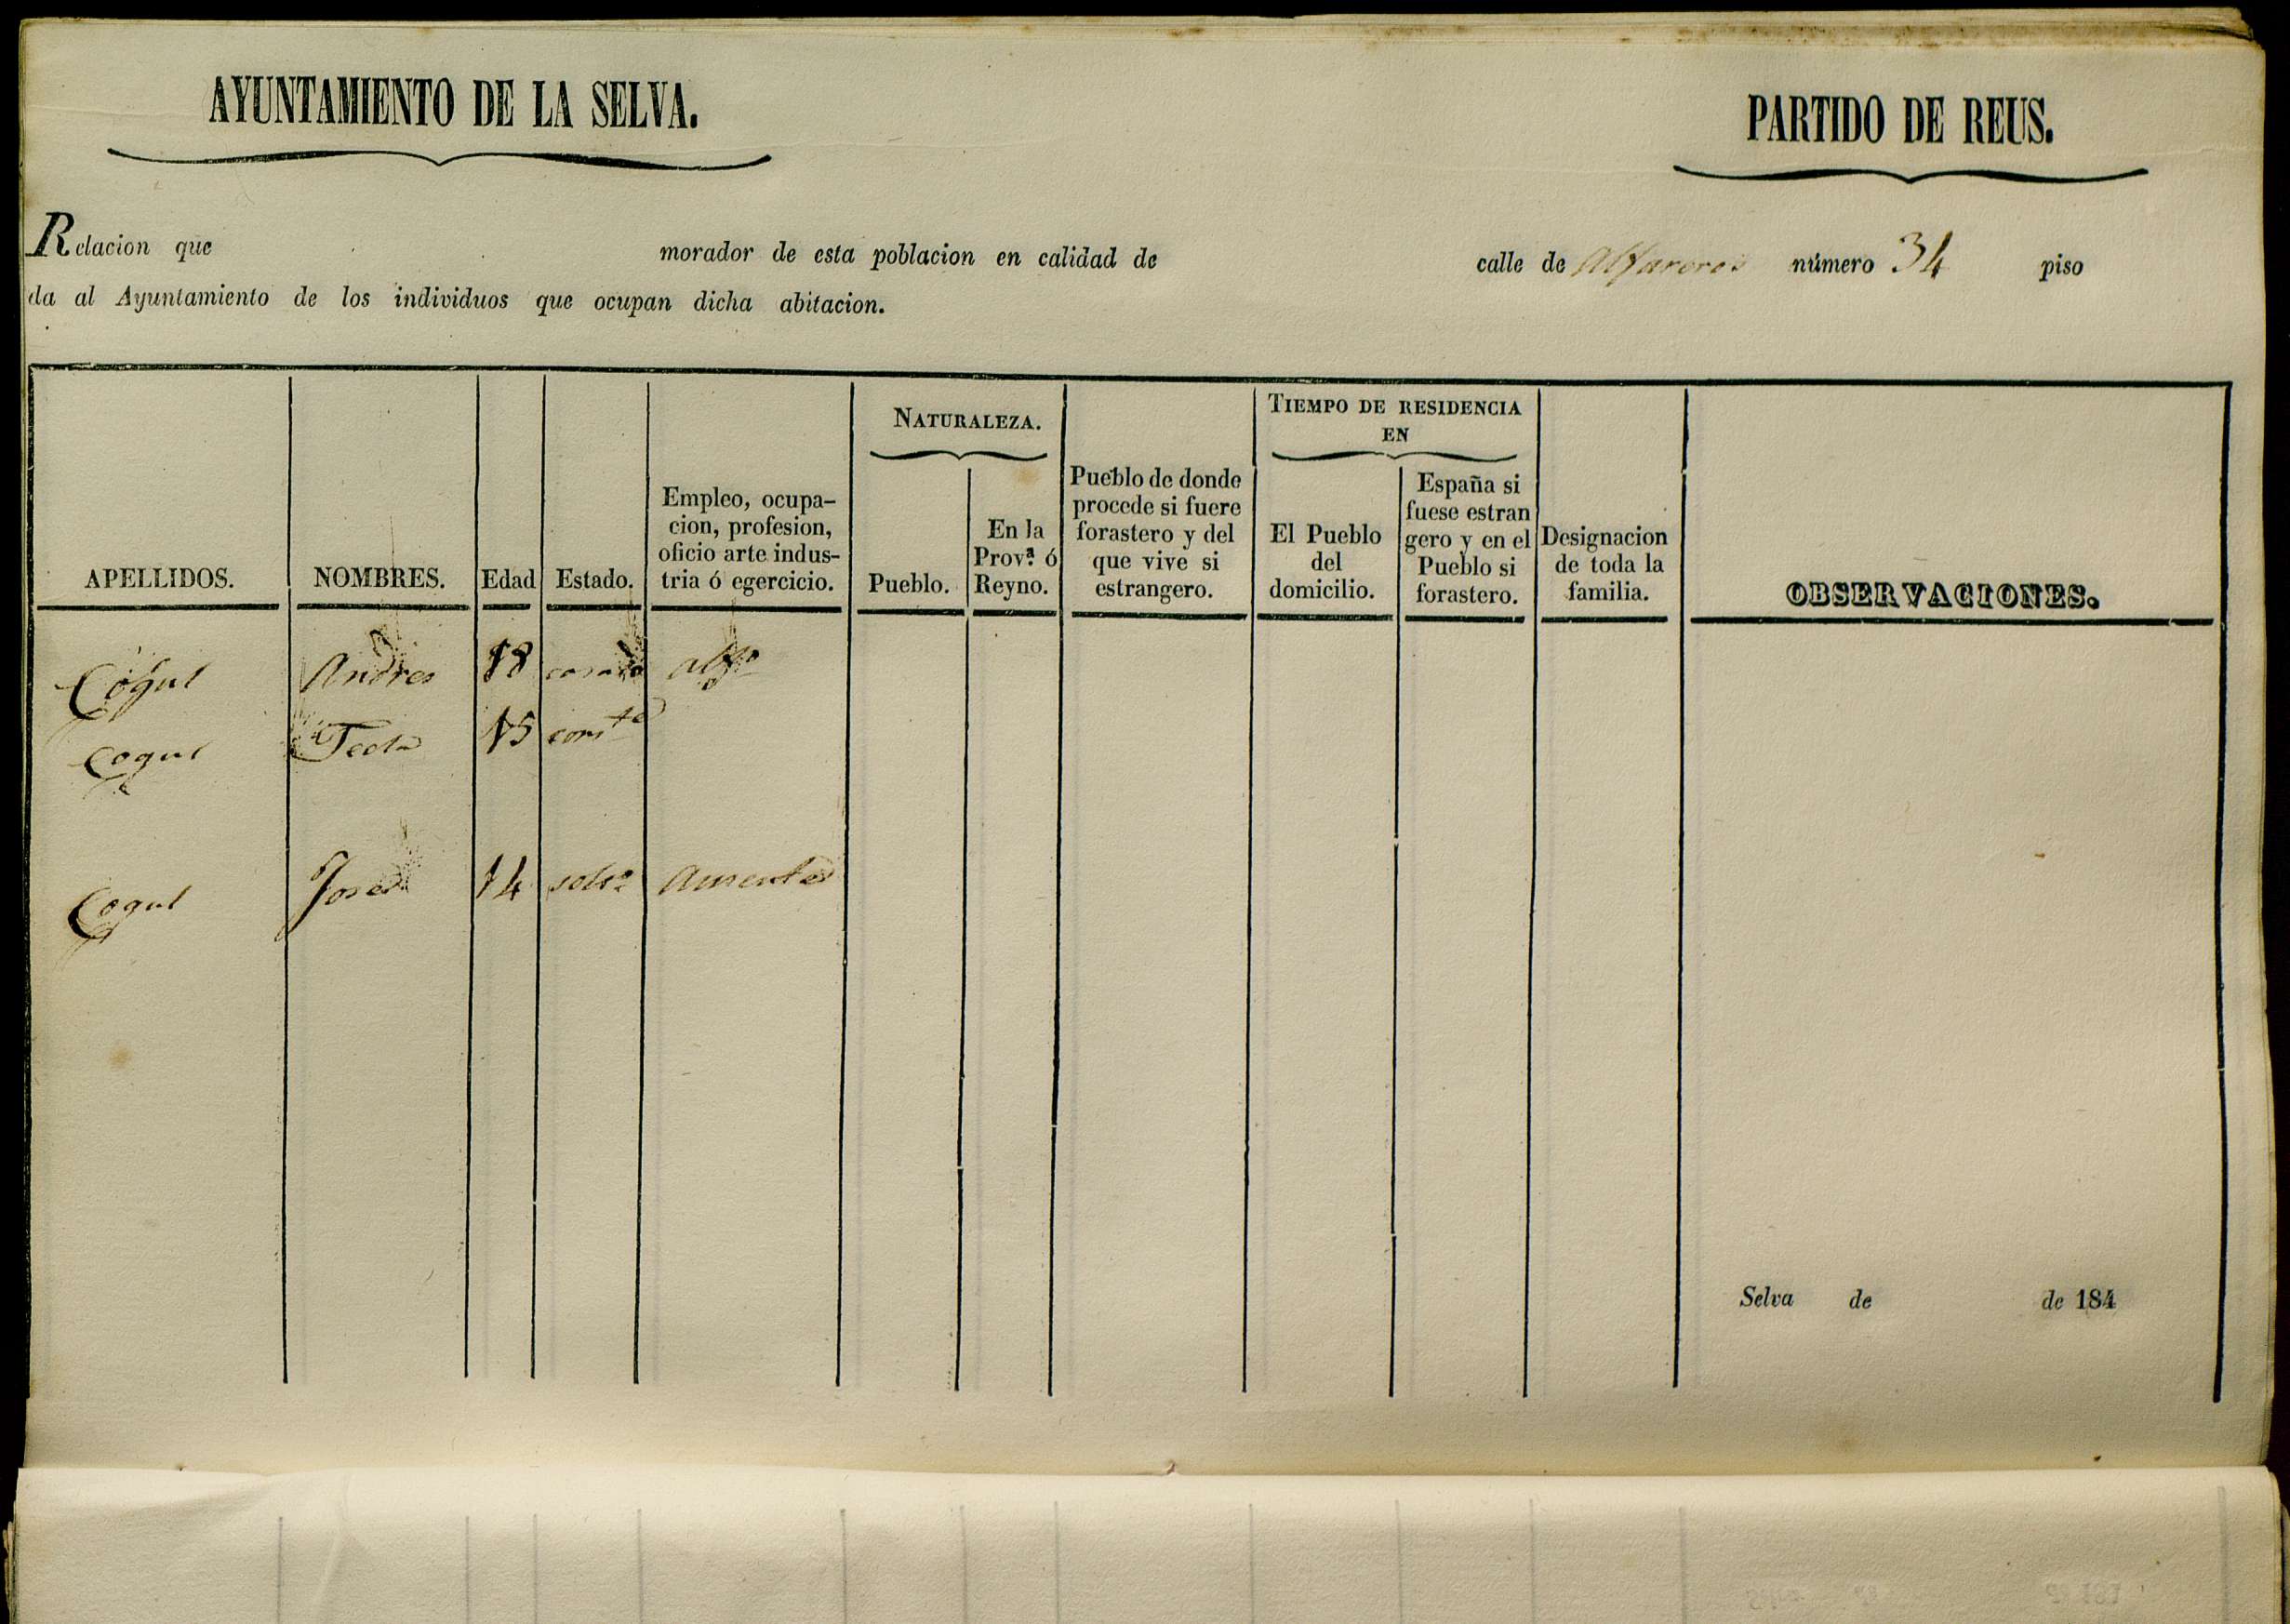 AYUNTAMIENTO DE LA SELVA.
PARTIDO DE REUS.
Relacion que morador de esta poblacion en calidad de calle de Alfareros número 34 piso
da al Ayuntamiento de los individuos que ocupan dicha abitacion.
NATURALEZA.
TIEMPO DE RESIDENCIA
EN
APELLIDOS.
NOMBRES.
Edad
Estado.
Empleo, ocupa-
cion, profesion,
oficio arte indus-
tria ó egercicio.
Pueblo.
En la
Prov.ª ó
Reyno.
Pueblo de donde
procede si fuere
forastero y del
que vive si
estrangero.
El Pueblo
del
domicilio.
España si
fuese estran
gero y en el
Pueblo si
forastero.
Designacion
de toda la
familia.
OBSERVACIONES.
Cogul Andres casado alfº
Cogul Tecla
Cogul Jose 14 soltº Ausente
Selva de de 184